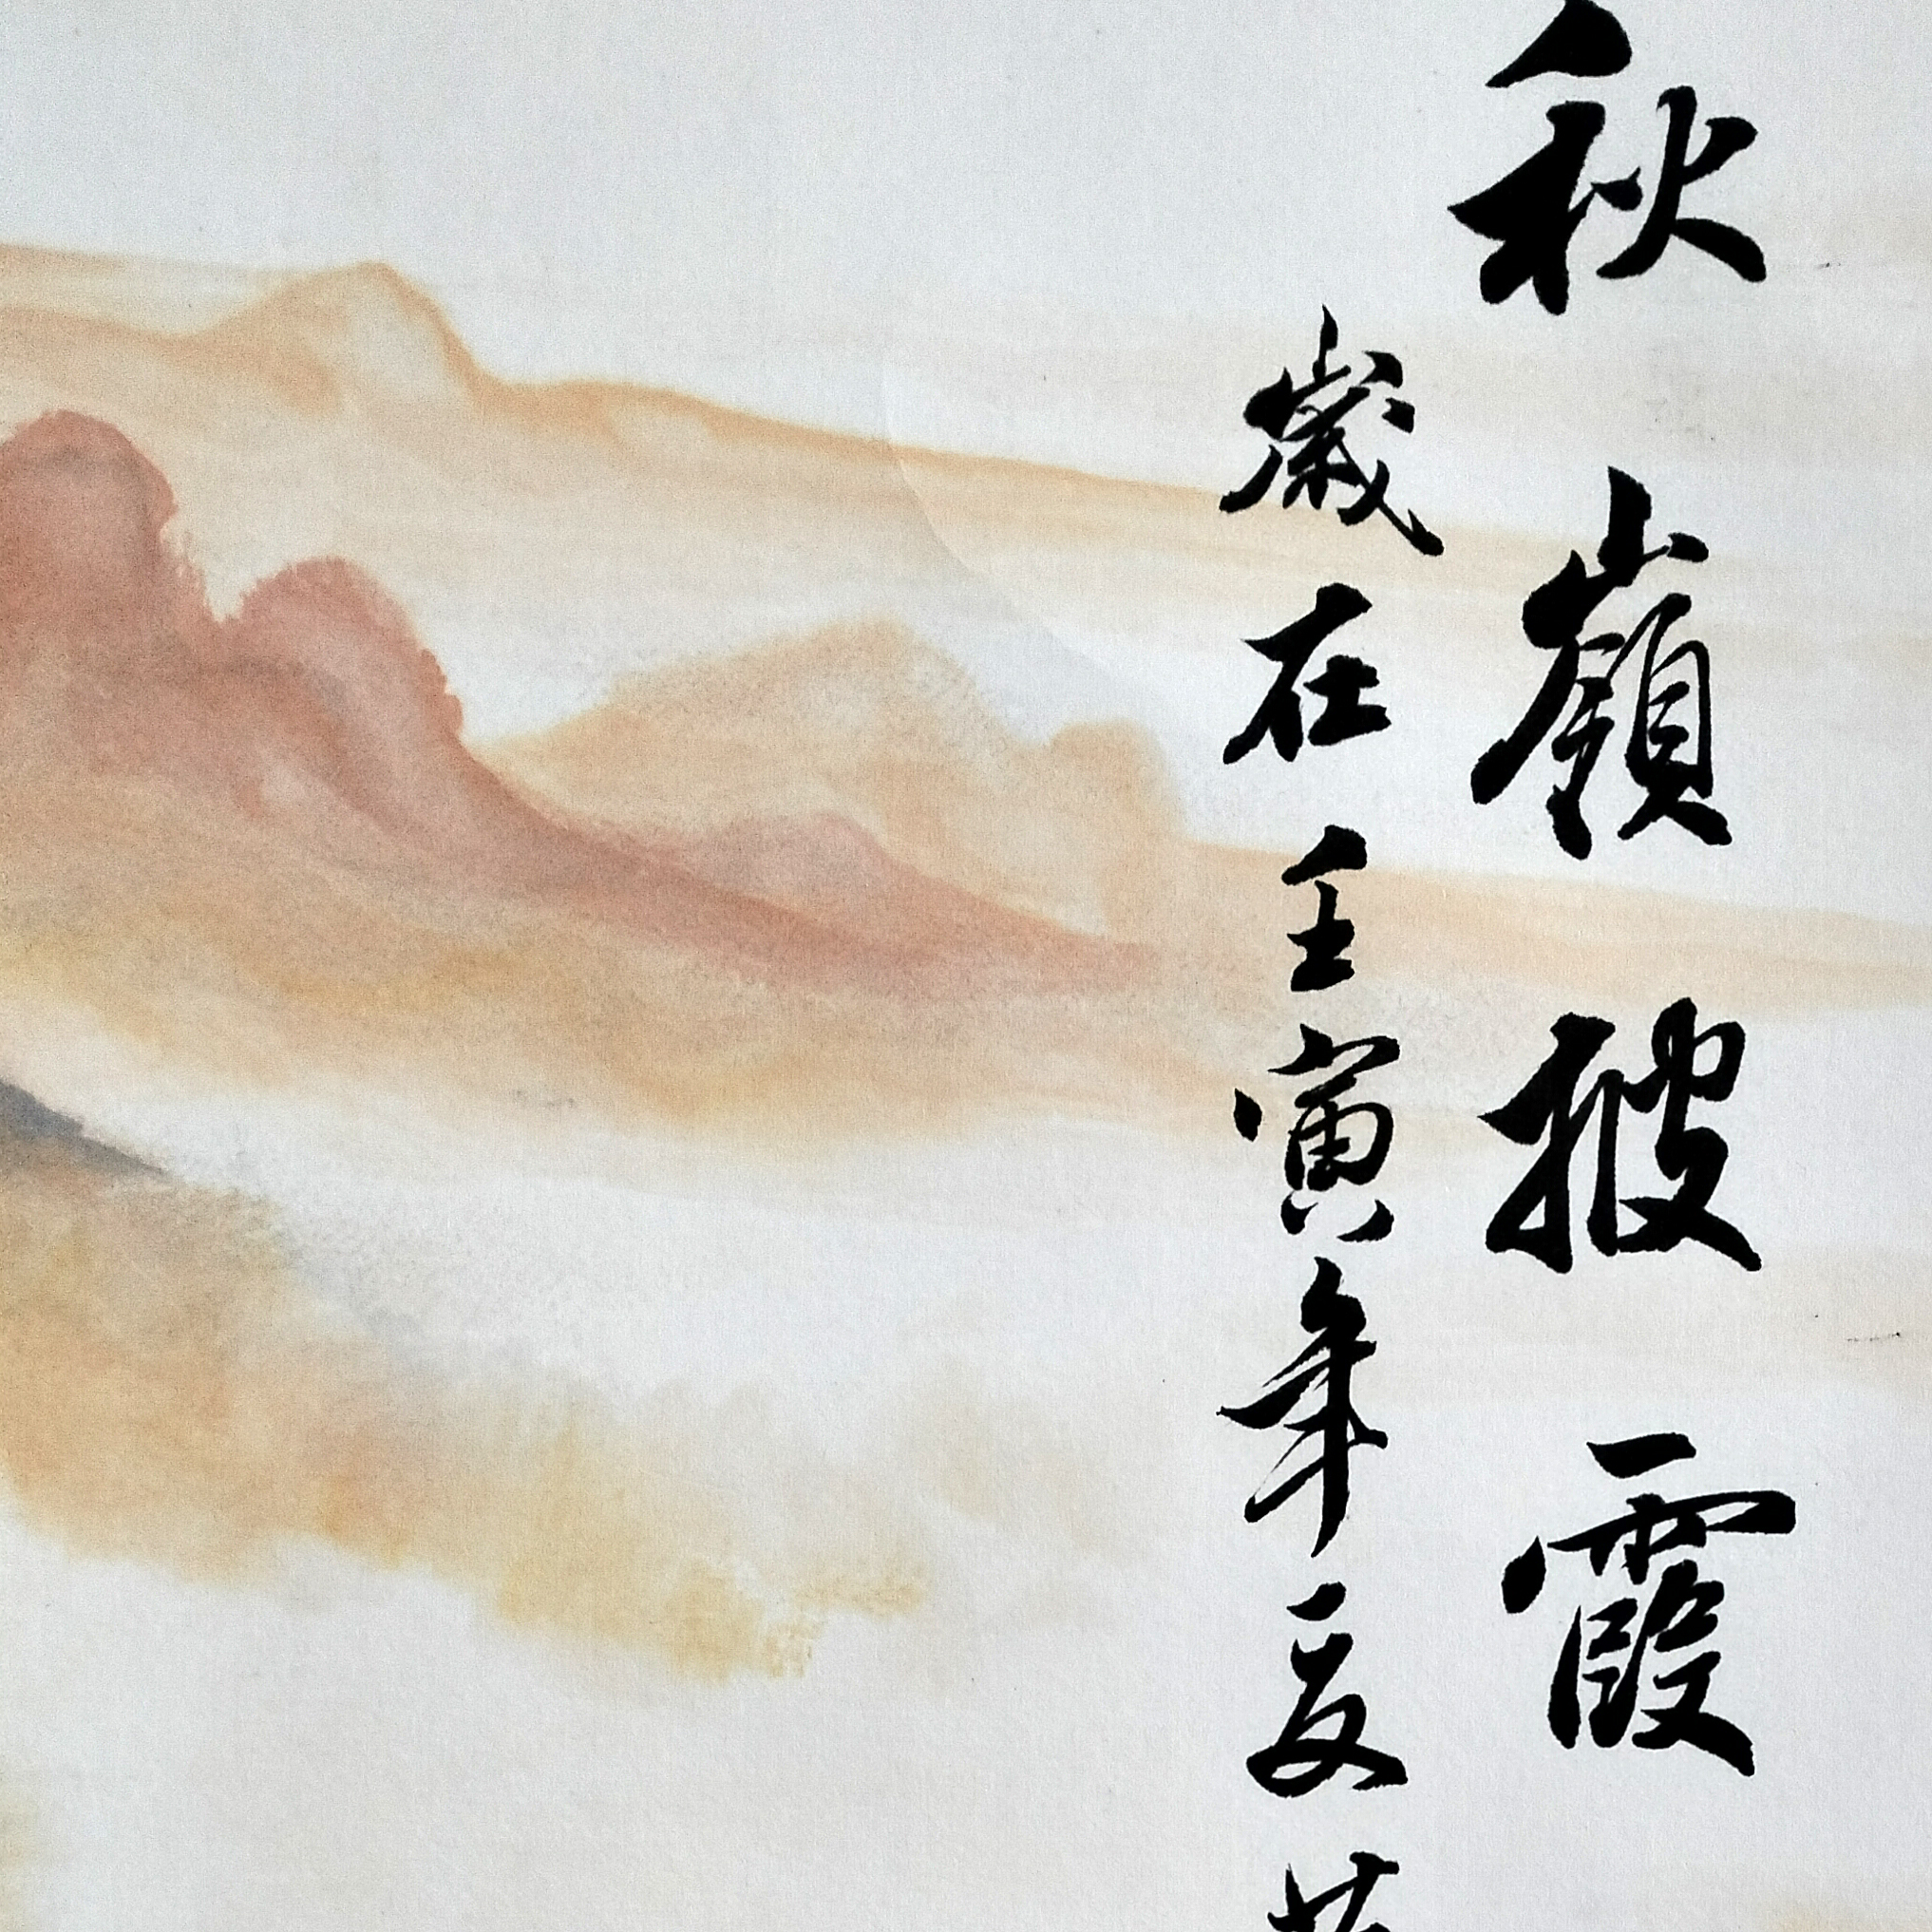 秋嶺披霞
歲在壬寅年夏